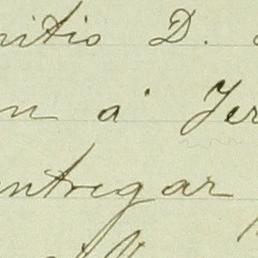 ritio D.
n á Fer
entregar